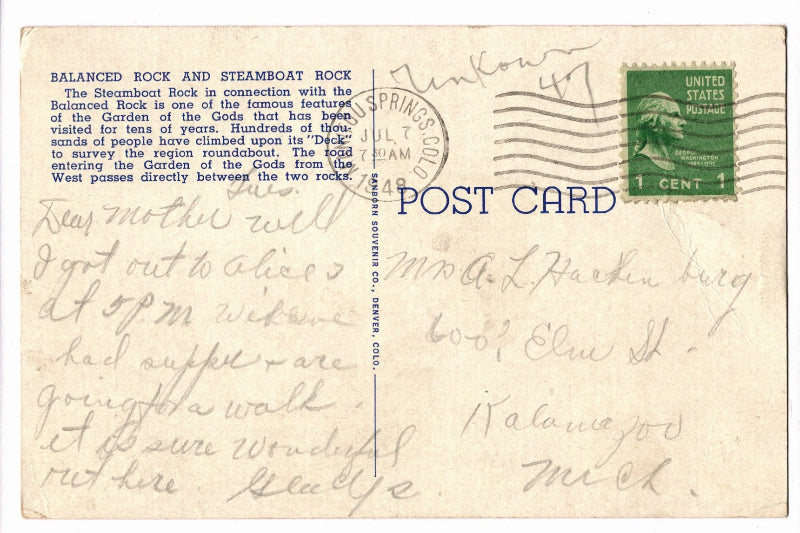 BALANCED ROCK AND STEAMBOAT ROCK
The Steamboat Rock in connection with the
Balanced Rock is one of the famous features
of the Garden of the Gods that has been
visited for tens of years. Hundreds of thou-
sands of people have climbed upon its "Deck"
to survey the region roundabout. The road
entering the Garden of the Gods from the
West passes directly between the two rocks.
Tues.
Dear Mother well
I got out to Alices
at 5 P.M. We have
had supper + are
going for a walk.
it is sure wonderful
out here Gladys
SANBORN SOUVENIR CO., DENVER, COLO.
MANITOU SPRINGS, COLO.
JUL 7
7 30 AM
1948
UNITED
STATES
POSTAGE
GEORGE
WASHINGTON
1789-1797
1 CENT 1
POST CARD
Mrs A. L. Hackenburg
600 Elm St.
Kalamazoo
Mich.